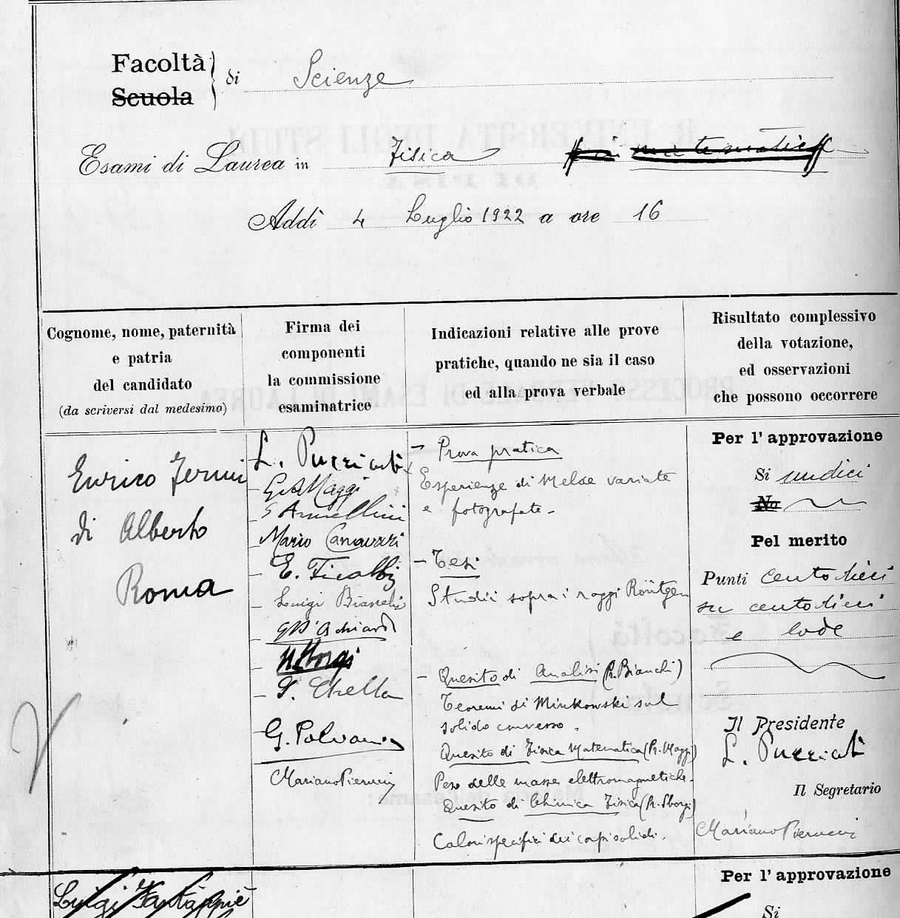 Facoltà
Scuola
di Scienze
Esami di Laurea in Fisica
Addì 4 Luglio 1922 a ore 16
Cognome, nome, paternità
e patria
del candidato
(da scriversi dal medesimo)
Firma dei
componenti
la commissione
esaminatrice
Indicazioni relative alle prove
pratiche, quando ne sia il caso
ed alla prova verbale
Risultato complessivo
della votazione,
ed osservazioni
che possono occorrere
Enrico Fermi
di Alberto
Roma
L. Puccianti
G. A. Maggi
S Armellini
Mario Canavari
E. Ficalbi
Luigi Bianchi
G D'Achiardi
G. Polvani
Mariano Pierucci
- Prova pratica
Esperienze di Melde variate
e fotografate.
- Tesi
Studii sopra i raggi Röntgen
- Quesito di Analisi (R. Bianchi)
Teoremi di Minkowski sul
solido convesso.
Quesito di Fisica Matematica (R. Maggi)
Peso delle masse elettromagnetiche.
Quesito di Chimica Fisica (R. Sborgi)
Calori specifici dei corpi solidi.
Per l'approvazione
Si undici
No
Pel merito
Punti centodieci
su centodieci
e lode
Il Presidente
L. Puccianti
Il Segretario
Mariano Pierucci
Luigi Fantappiè
Per l'approvazione
Si